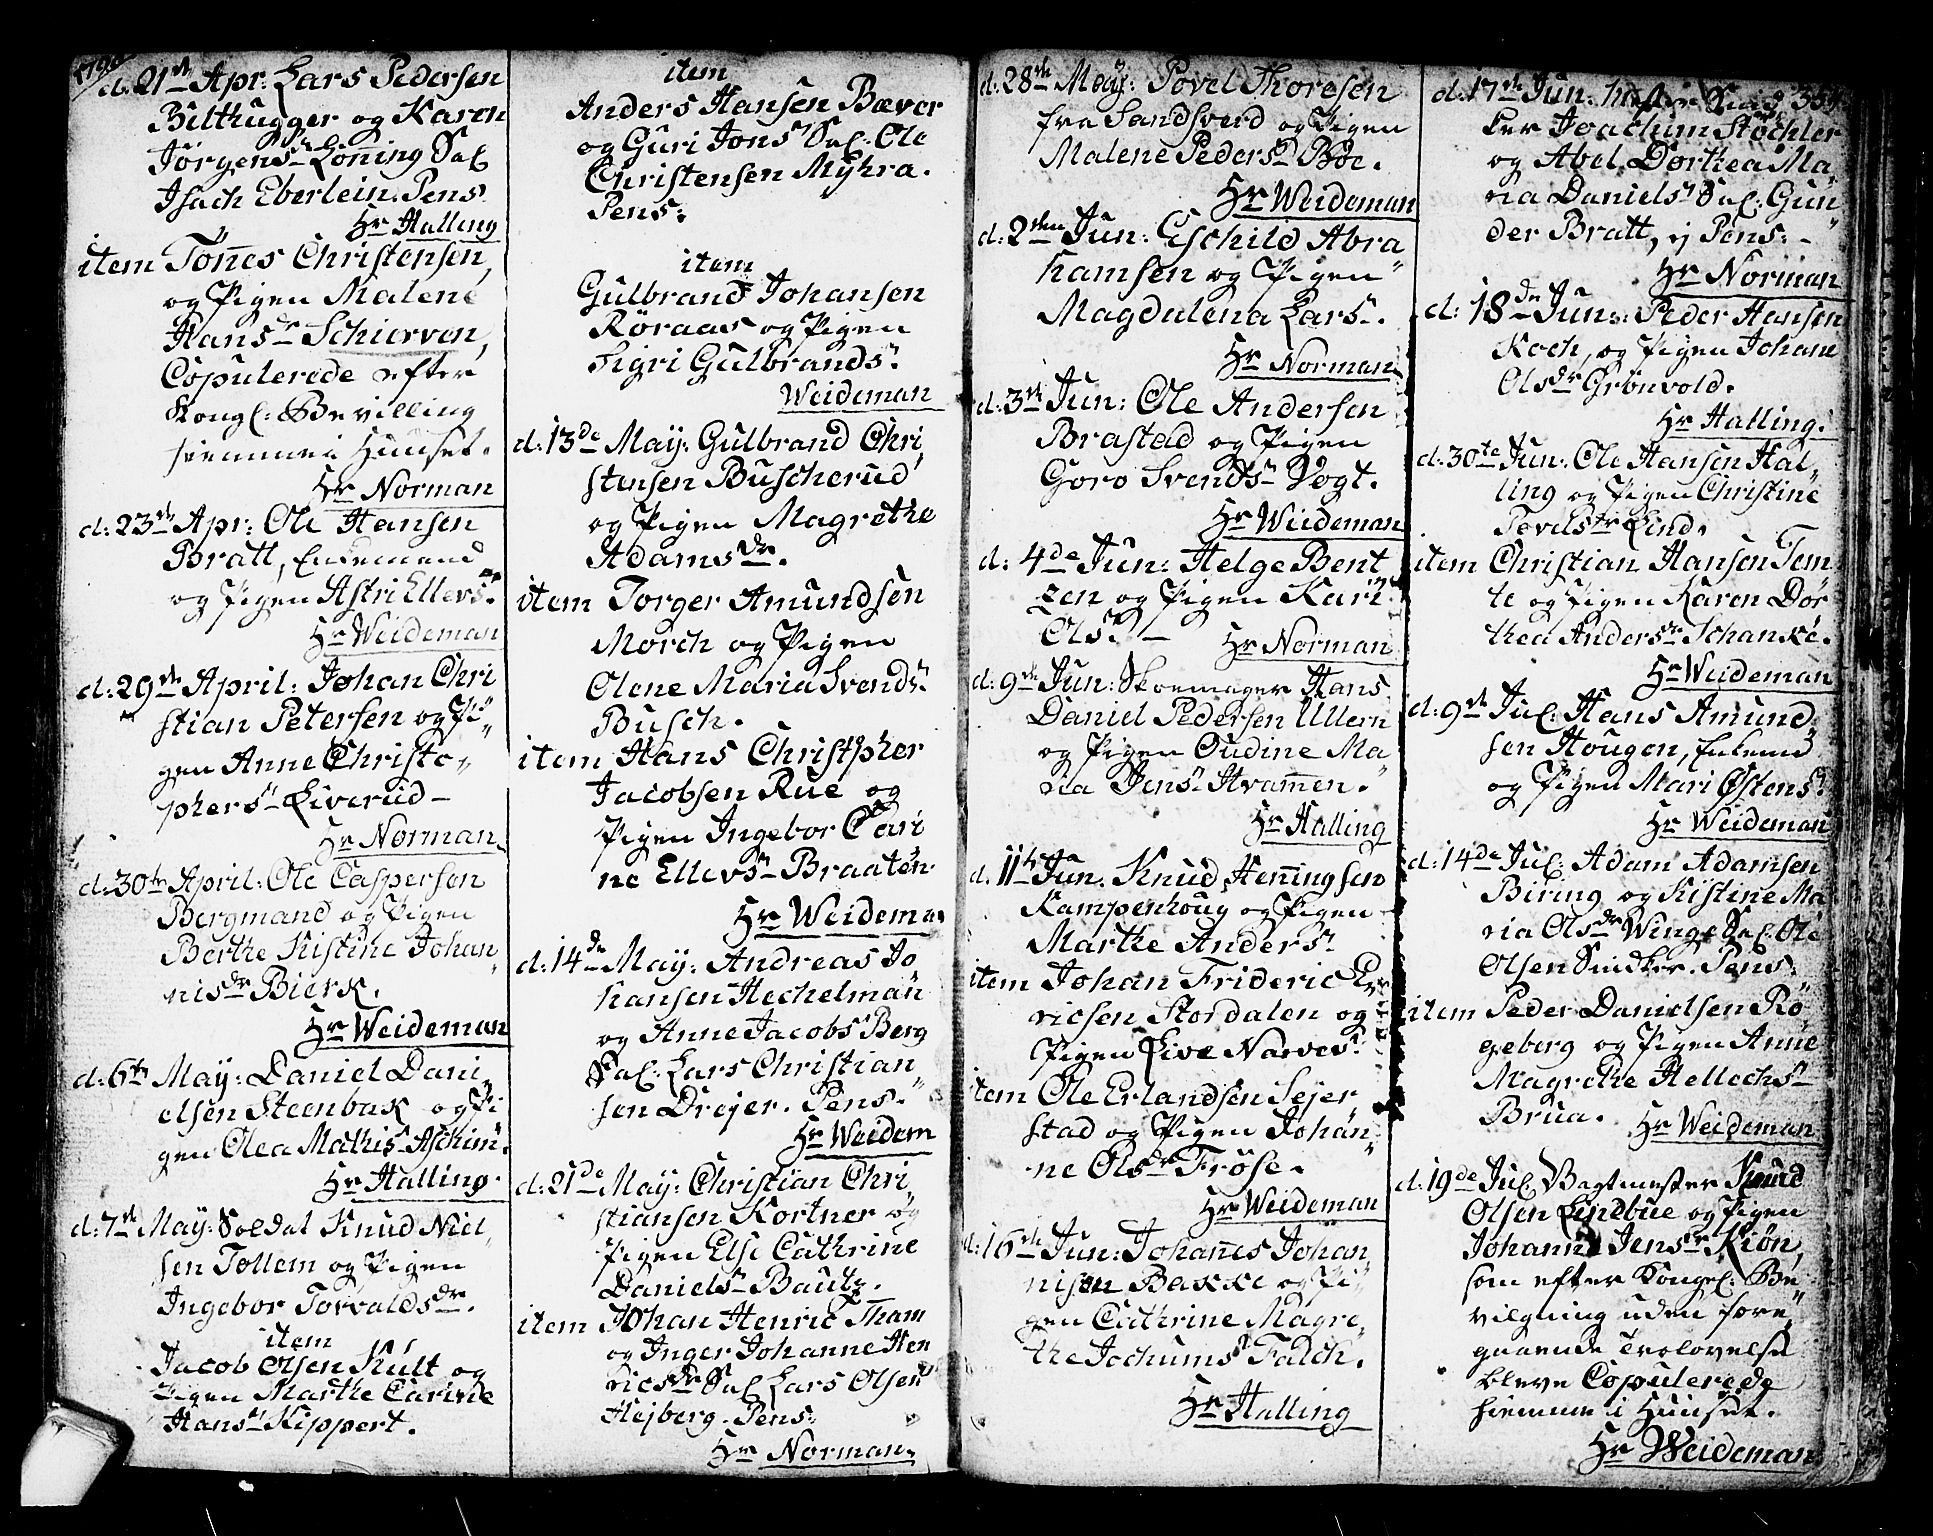 1790
d. 21de Apr: Lars Pedersen
Bilthugger og Karen
Jörgensdr Lönning Sal
Isach Eberlein. Pens
Hr Halling
item Tönnes Christensen,
og Pigen Malene
Hansdr Schierven,
Copulerede efter
Kongl: Bevilling
hiemme i Huuset.
Hr Norman
d: 23de Apr: Ole Hansen
Bratt, Enkemand
og Pigen Astri Ellevsr
Hr Weideman
d: 29de April: Johan Chri
stian Petersen og Pi„
gen Anne Christo„
phersr Liverud —
Hr Norman
d: 30te April: Ole Caspersen
Bergmand og Pigen
Berthe Kistine Johan„
nisdr Bierk.
Hr Weideman
d: 6te May: Daniel Dani„
elsen Steenbak og Pi„
gen Olea Mathisr Aschim.
Hr Halling.
d: 7de May: Soldat Knud Niel„
sen Tollem og Pigen
Ingebor Torvaldsdr.
item
Jacob Olsen Kult og
Pigen Marthe Carine
Hansr Kippert.
item
Anders Hansen Bæver
og Guri Jonsr Sal: Ole
Christensen Myhra.
Pens:
item
Gulbrand Johansen
Röraas og Pigen
Sigri Gulbrandsr.
Weideman
d: 13de May: Gulbrand Chri„
stensen Buscherud
og Pigen Magrethe
Adamsdr.
item Torger Amundsen
Morch og Pigen
Olene Maria Svendsr
Busch.
item Hans Christpher
Jacobsen Rue og
Pigen Ingebor Cari
ne Ellevsr Braaten.
Hr Weideman
d: 14de May: Andreas Jo„
hansen Hechelman
og Anne Jacobsr Berg
Sal: Lars Christian„
sen Drejer. Pens.
Hr Weidem
d: 21de May: Christian Chri
stiansen Kortner og
Pigen Else Cathrine
Danielsr Bautz.
item Johan Henric Tham
og Inger Johanne Hen
ricsdr Sal Lars Olsen
Hejberg. Pens:
Hr Norman.
d: 28de May: Povel Thoresen
fra Sandsverd og Pigen
Malene Pedersdr Böe.
Hr Weideman
d: 2den Jun: Eschild Abra„
hamsen og Pigen
Magdalena Larsr.
Hr Norman.
d: 3de Jun: Ole Andersen
Brastad og Pigen
Goro Svendsr Vogt.
Hr Weideman
d: 4de Jun: Helge Bent„
zen og Pigen Kari
Olsr. —
Hr Norman
d: 9de Jun: Skoemager Hans
Daniel Pedersen Ullern
og Pigen Oudine Ma„
ria Jensr Hvammen.
Hr Halling
d. 11te Jun: Knud Henningsen
Kampenhoug og Pigen
Marthe Andersr
item Johan Frideric Er„
ricsen Stordalen og
Pigen Live Narvesr
item Ole Erlandsen Sejer
stad og Pigen Johan„
ne Olsdr Fröse.
Hr Weideman
d: 16de Jun: Johannes Johan
nisen Bakke og Pi„
gen Cathrine Magre„
the Jochumsr Falch.
Hr Halling
d: 17de Jun: 359
ker Joachim Stöchler
og Abel Dorthea Ma„
ria Danielsr Sal: Gun„
der Bratt, ej Pens: –
Hr Norman
d: 18de Jun: Peder Hansen
Koch, og Pigen Johane
Olsdr Grönvold.
Hr Halling.
d. 30te Jun: Ole Hansen Hal„
ling og Pigen Christine
Povelsdr Lind.
item Christian Hansen Tem
te og Pigen Karen Dor
thea Andersdr Schanke.
Hr Weideman
d: 9de Jul: Hans Amund„
sen Hougen, Enkemd
og Pigen Mari Østensr
Hr Weideman
d: 14de Jul: Adam Adamsen
Biring og Kistine Ma„
ria Olsdr Winge Sal: Ole
Olsen Snidker. Pens:
item Peder Danielsen Rö„
geberg og Pigen Anne
Magrethe Hellechsr
Brua.
Hr Weideman
d: 19de Jul Bagtmester Knud
Olsen Lindbue og Pigen
Johanne Jensdr Kiön,
som efter Kongel: Be„
vilgning uden fore„
gaaende Trolovelse
bleve Copulerede
hiemme i Huuset.
Hr Weideman